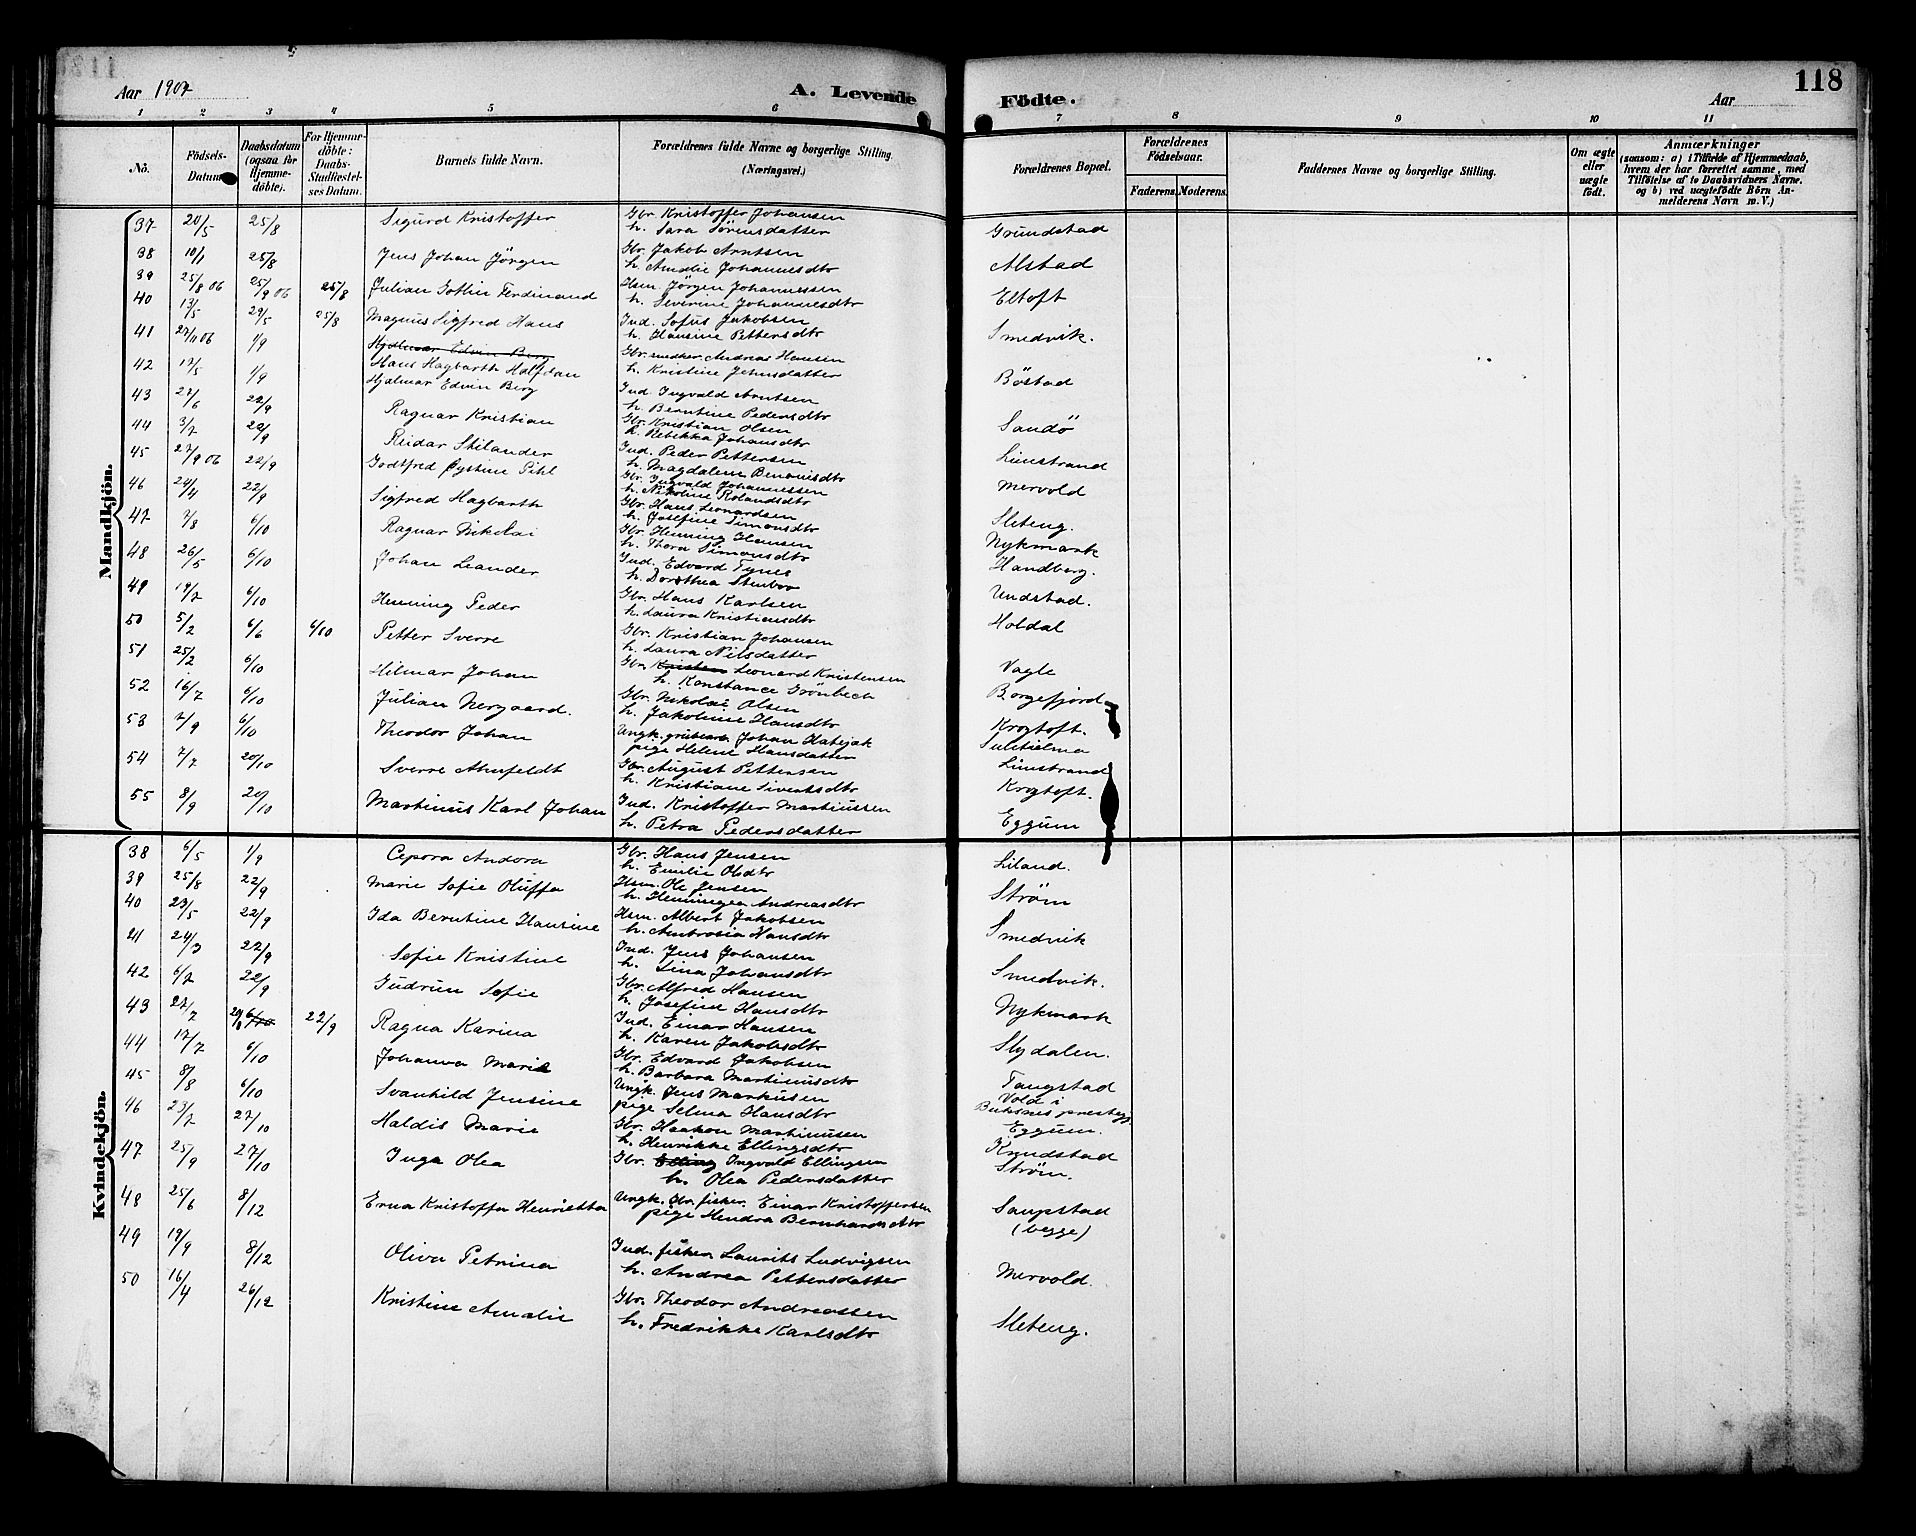 118
Aar 1907 A. Levende Födte. Aar
1 2 3 4 5 6 7 8 9 10 11
No. Födsels-Datum. Daabsdatum (ogsaa for Hjemme-döbte). For Hjemme-döbte: Daabs-Stadfæstel-ses Datum. Barnets fulde Navn. Forældrenes fulde Navne og borgerlige Stilling. (Næringsvei.) Forældrenes Bopæl. Forældrenes Födselsaar. Faderens. Moderens. Faddernes Navne og borgerlige Stilling. Om ægte eller uægte födt. Anmærkninger (saasom: a) i Tilfælde af Hjemmedaab, hvem der har forrettet samme, med Tilföielse af to Daabsvidners Navne, og b) ved uægtefödte Börn An-melderens Navn m. V.)
Mandkjön.
37 20/5 25/8 Sigurd Kristoffer Gbr. Kristoffer Johansen
h. Sara Sörensdatter Grundstad
38 10/1 25/8 Jens Johan Jörgen Gbr. Jakob Arntsen
h. Amalie Johannesdtr Alstad
39 25/8 06 25/9 06 25/8 Julian Gothin Ferdinand Hsm. Jörgen Johannessen
h. Severine Johannesdtr Eltoft
40 13/5 29/5 25/8 Magnus Sigfred Hans Ind. Sofus Jakobsen
h. Hansine Pettersdtr Smedvik.
41 27/11 06 1/9 Hjalmar Edvin Berg
Hans Hagbarth Halfdan Gbr. snedker Andreas Hansen
h. Kristine Jehnsdatter Böstad
42 17/5 1/9 Hjalmar Edvin Berg Ind. Ingvald Arntsen
h. Berntine Pedersdtr Sandö
43 27/6 22/9 Ragnar Kristian Gbr. Kristian Olsen
h. Rebekka Johansdtr Limstrand
44 3/7 22/9 Reidar Stilander Ind. Peder Pettersen
h. Magdalene Benonisdtr Mervold
45 27/9 06 22/9 Godtfred Øystine Pihl Gbr. Ingvald Johannessen
h. Nikoline Rolandsdtr Sleteng.
46 24/4 22/9 Sigfred Hagbarth Gbr. Hans Leonardsen
h. Josefine Simonsdtr Nykmark
47 7/8 6/10 Ragnar Nikolai Gbr. Henning Hansen
h. Thora Simonsdtr Handberg.
48 26/5 6/10 Johan Leander Ind. Edvard Tynes
h. Dorothea Stenbor Undstad.
49 19/7 6/10 Henning Peder Gbr. Hans Karlsen
h. Laura Kristiansdtr Holdal
50 5/2 6/6 6/10 Petter Sverre Gbr. Kristian Johansen
h. Laura Nilsdatter Vagle
51 25/2 6/10 Hilmar Johan Gbr. Kristen Leonard Kristensen
h. Konstance Grönbech Borgefjord
52 16/7 6/10 Julian Nergaard. Gbr. Nikolai Olsen
h. Jakobine Hansdtr Krogtoft.
53 7/9 6/10 Theodor Johan Ungk. grubearb. Johan Hatejak Sulitjelma
pige Helene Hansdatter Limstrand
54 7/7 20/10 Sverre Ahnfeldt Gbr. August Pettersen
h. Kristiane Sivertsdtr Krogtoft.
55 8/9 20/10 Martinus Karl Johan Ind. Kristoffer Martinussen
h. Petra Pedersdatter Eggum
Kvindekjön.
38 6/5 1/9 Cepora Andora Gbr. Hans Jensen
h. Emilie Olsdtr Liland.
39 25/8 22/9 Marie Sofie Oluffa Hsm. Ole Jensen
h. Henningea Andreasdtr Ström
40 23/5 22/9 Ida Berntine Hansine Hsm. Albert Jakobsen
h. Ambrosia Hansdtr Smedvik
21 24/3 22/9 Sofie Kristine Ind. Jens Johansen
h. Lina Johansdtr Smedvik.
42 6/7 22/9 Gudrun Sofie Gbr. Alfred Hansen
h. Josefine Hansdtr Nykmark
43 27/7 29/8 6/10 22/9 Ragna Karina Ind. Einar Hansen
h. Karen Jakobsdtr Slydalen.
44 17/7 6/10 Johanna Marie Gbr. Edvard Jakobsen
h. Barbara Martinusdtr Tangstad
45 8/8 6/10 Svanhild Jensine Ungk. Jens Markusen Vold i Buksnes prestegj.
pige Selma Hansdtr Eggum.
46 23/7 27/10 Haldis Marie Gbr. Haakon Martinusen
h. Henrikke Ellingsdtr Knudstad
47 25/9 27/10 Inga Olea Gbr. Elling Ingvald Ellingsen
h. Olea Pedersdatter Ström.
48 25/6 8/12 Erna Kristoffa Henrietta Ungk. Gbr. fisker Einar Kristoffersen
pige Hendra Bernhardsdtr Saupstad
(begge)
49 19/9 8/12 Oliva Petrina Ind. fisker Laurits Ludvigsen
h. Andrea Pettersdatter Mervold.
50 16/4 26/12 Kristine Amalie Gbr. Theodor Andreassen
h. Fredrikke Karlsdtr Sleteng.